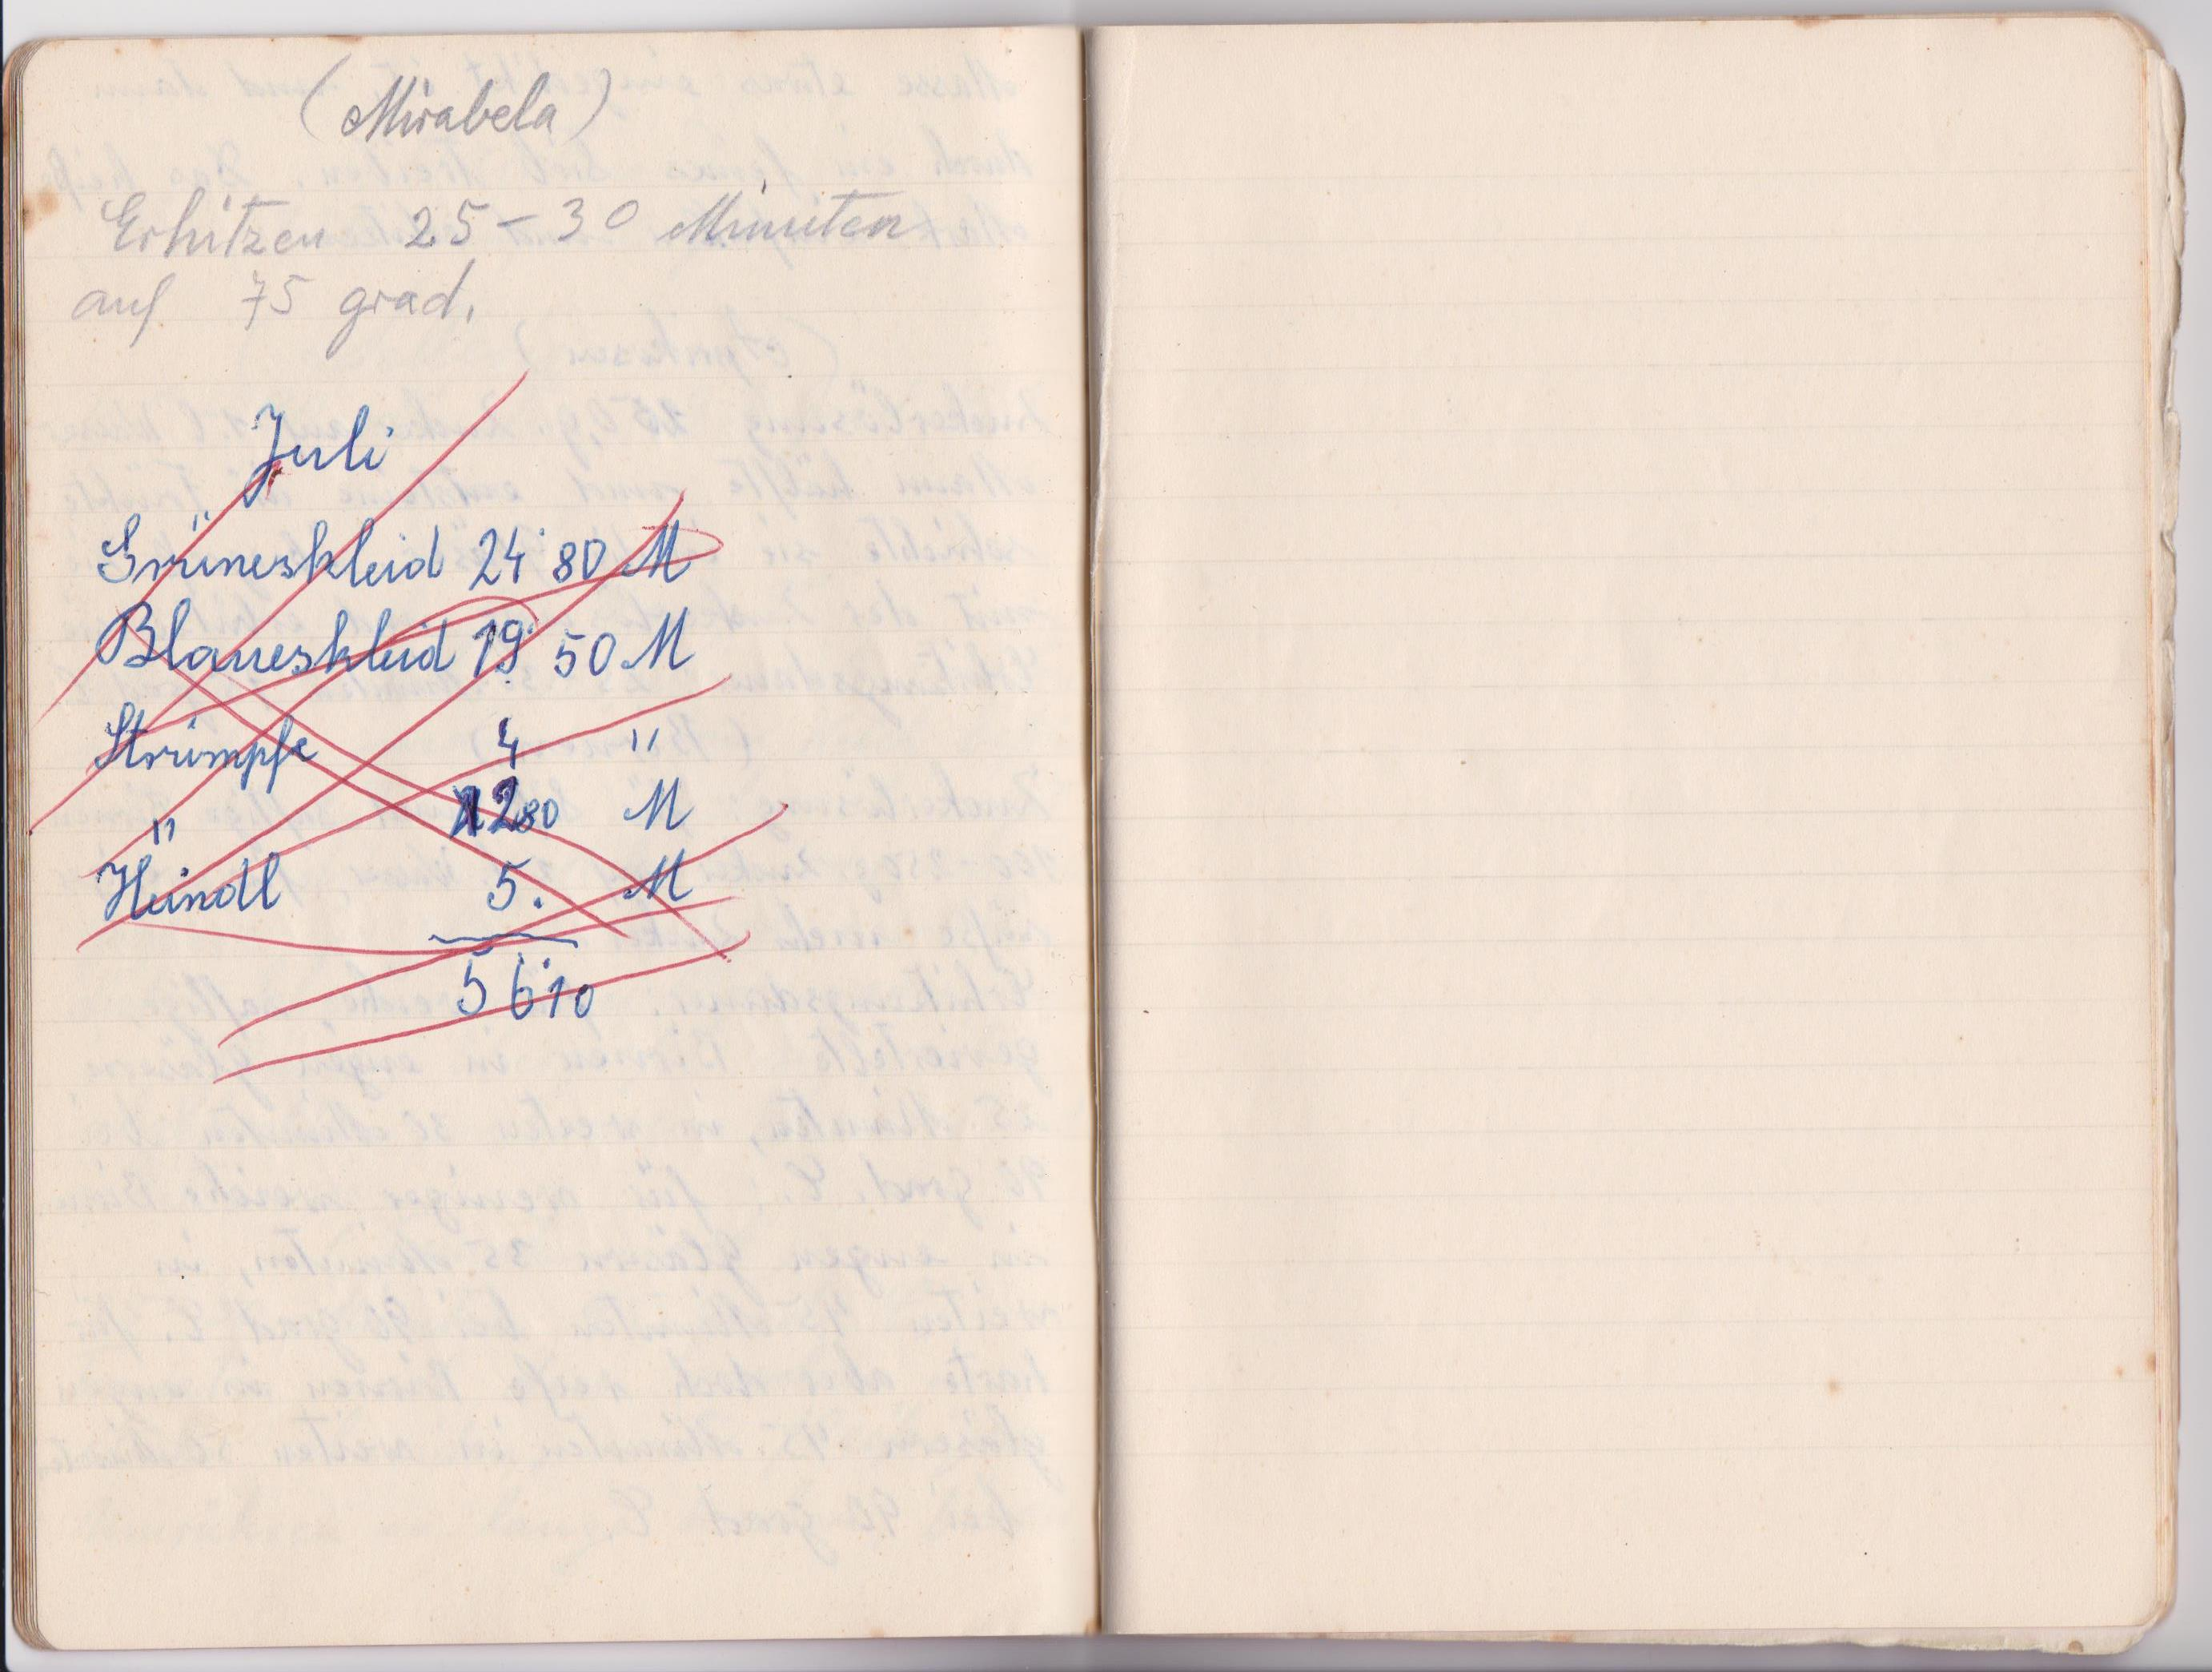 (Mirabela)
Erhitzen 25-30 Minuten
auf 75 grad.
Juli
Grüneskleid 24 80 M
Blaueskleid 19 50 M
Strümpfe 4 "
" 280 M
Hündl 5. M
56 10